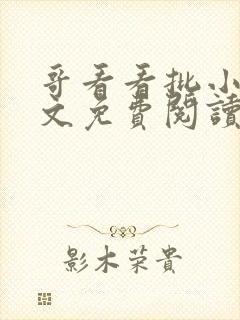 哥看看批小
文免費閱讀
影木荣貴